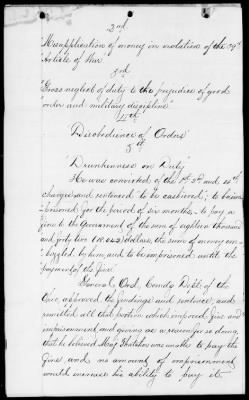 2nd
Misapplication of money in violation of the 39th
Article of War
3rd
"Gross neglect of duty to the prejudice of good
order and military discipline"
4th
Disobedience of Orders
5th
"Drunkenness on Duty"
He was convicted of the 1st 2d and 4th
charges and sentenced to be cashiered; to be im-
prisoned for the period of six months - to pay a
fine to the Government of the sum of eighteen thousand
and forty two (18.042) dollars, the sum of money em-
bezzled by him, and to be imprisoned until the
payment of the fine.
General Ord, Comdg Dist. of the
approved the findings and sentence, and
remitted all that portion which imposed fine and
imprisonment and giving as a reason for so doing,
that he believed Maj. Thatcher was unable to pay the
fine, and no amount of imprisonment
would increase his ability to pay it